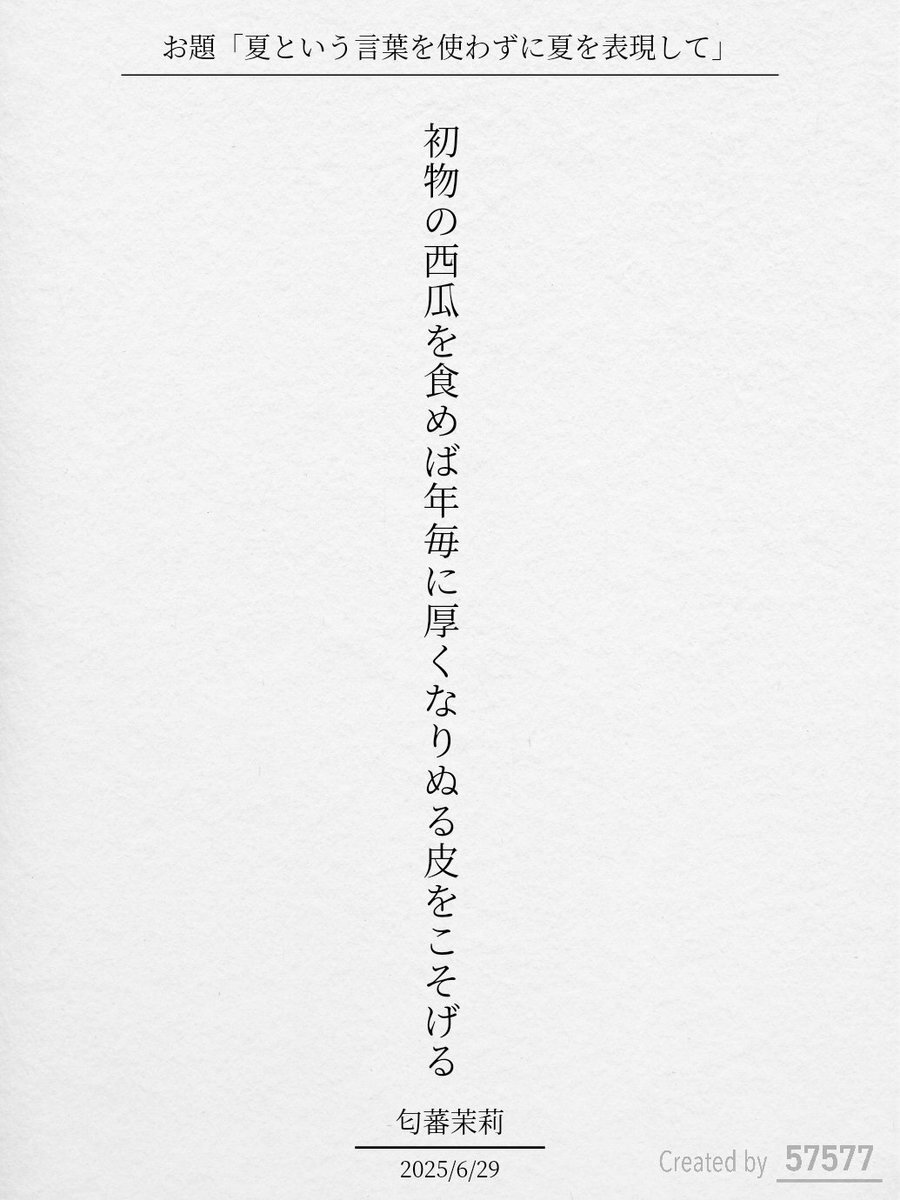 お題「夏という言葉を使わずに夏を表現して」
初物の西瓜を食めば年毎に厚くなりぬる皮をこそげる
匂蕃茉莉
2025/6/29
Created by 57577